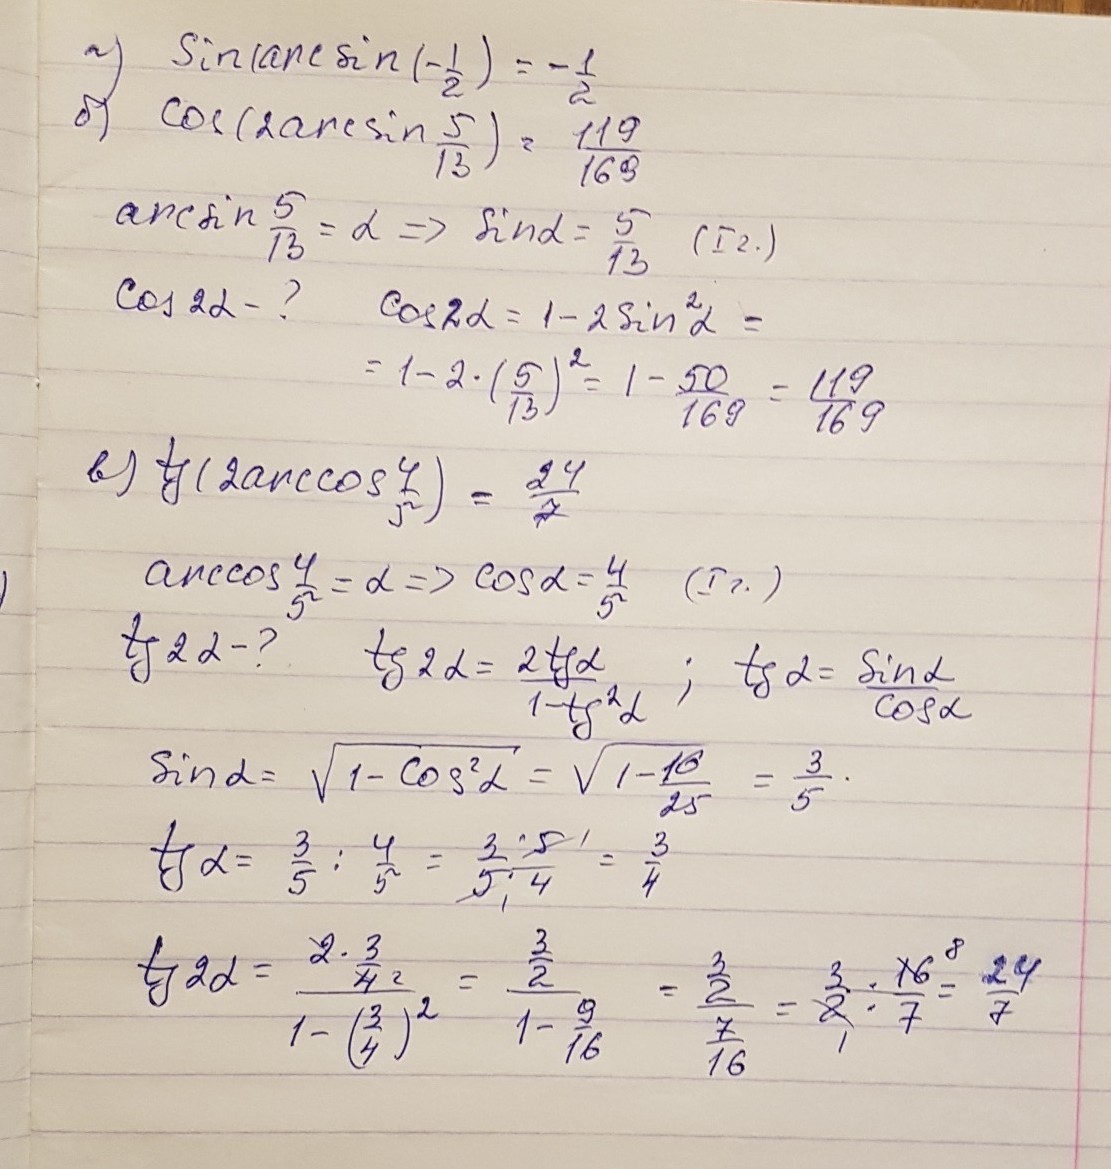 а) Sin(arcsin(-1/2) = -1/2
б) cos(2arcsin 5/13) = 119/169
arcsin 5/13 = α => Sinα = 5/13 (I г.)
Cos2α - ? Cos2α = 1 - 2Sin²α =
= 1 - 2·(5/13)² = 1 - 50/169 = 119/169
в) tg(2arccos 4/5) = 24/7
arccos 4/5 = α => cosα = 4/5 (I г.)
tg2α - ? tg2α = 2tgα/(1-tg²α) ; tgα = Sinα/cosα
Sinα = √(1 - Cos²α) = √(1 - 16/25) = 3/5.
tgα = 3/5 : 4/5 = (3·5)/(5·4) = 3/4
tg2α = (2·3/4)/(1-(3/4)²) = (3/2)/(1 - 9/16) = (3/2)/(7/16) = 3/2 : 16/7 = 24/7